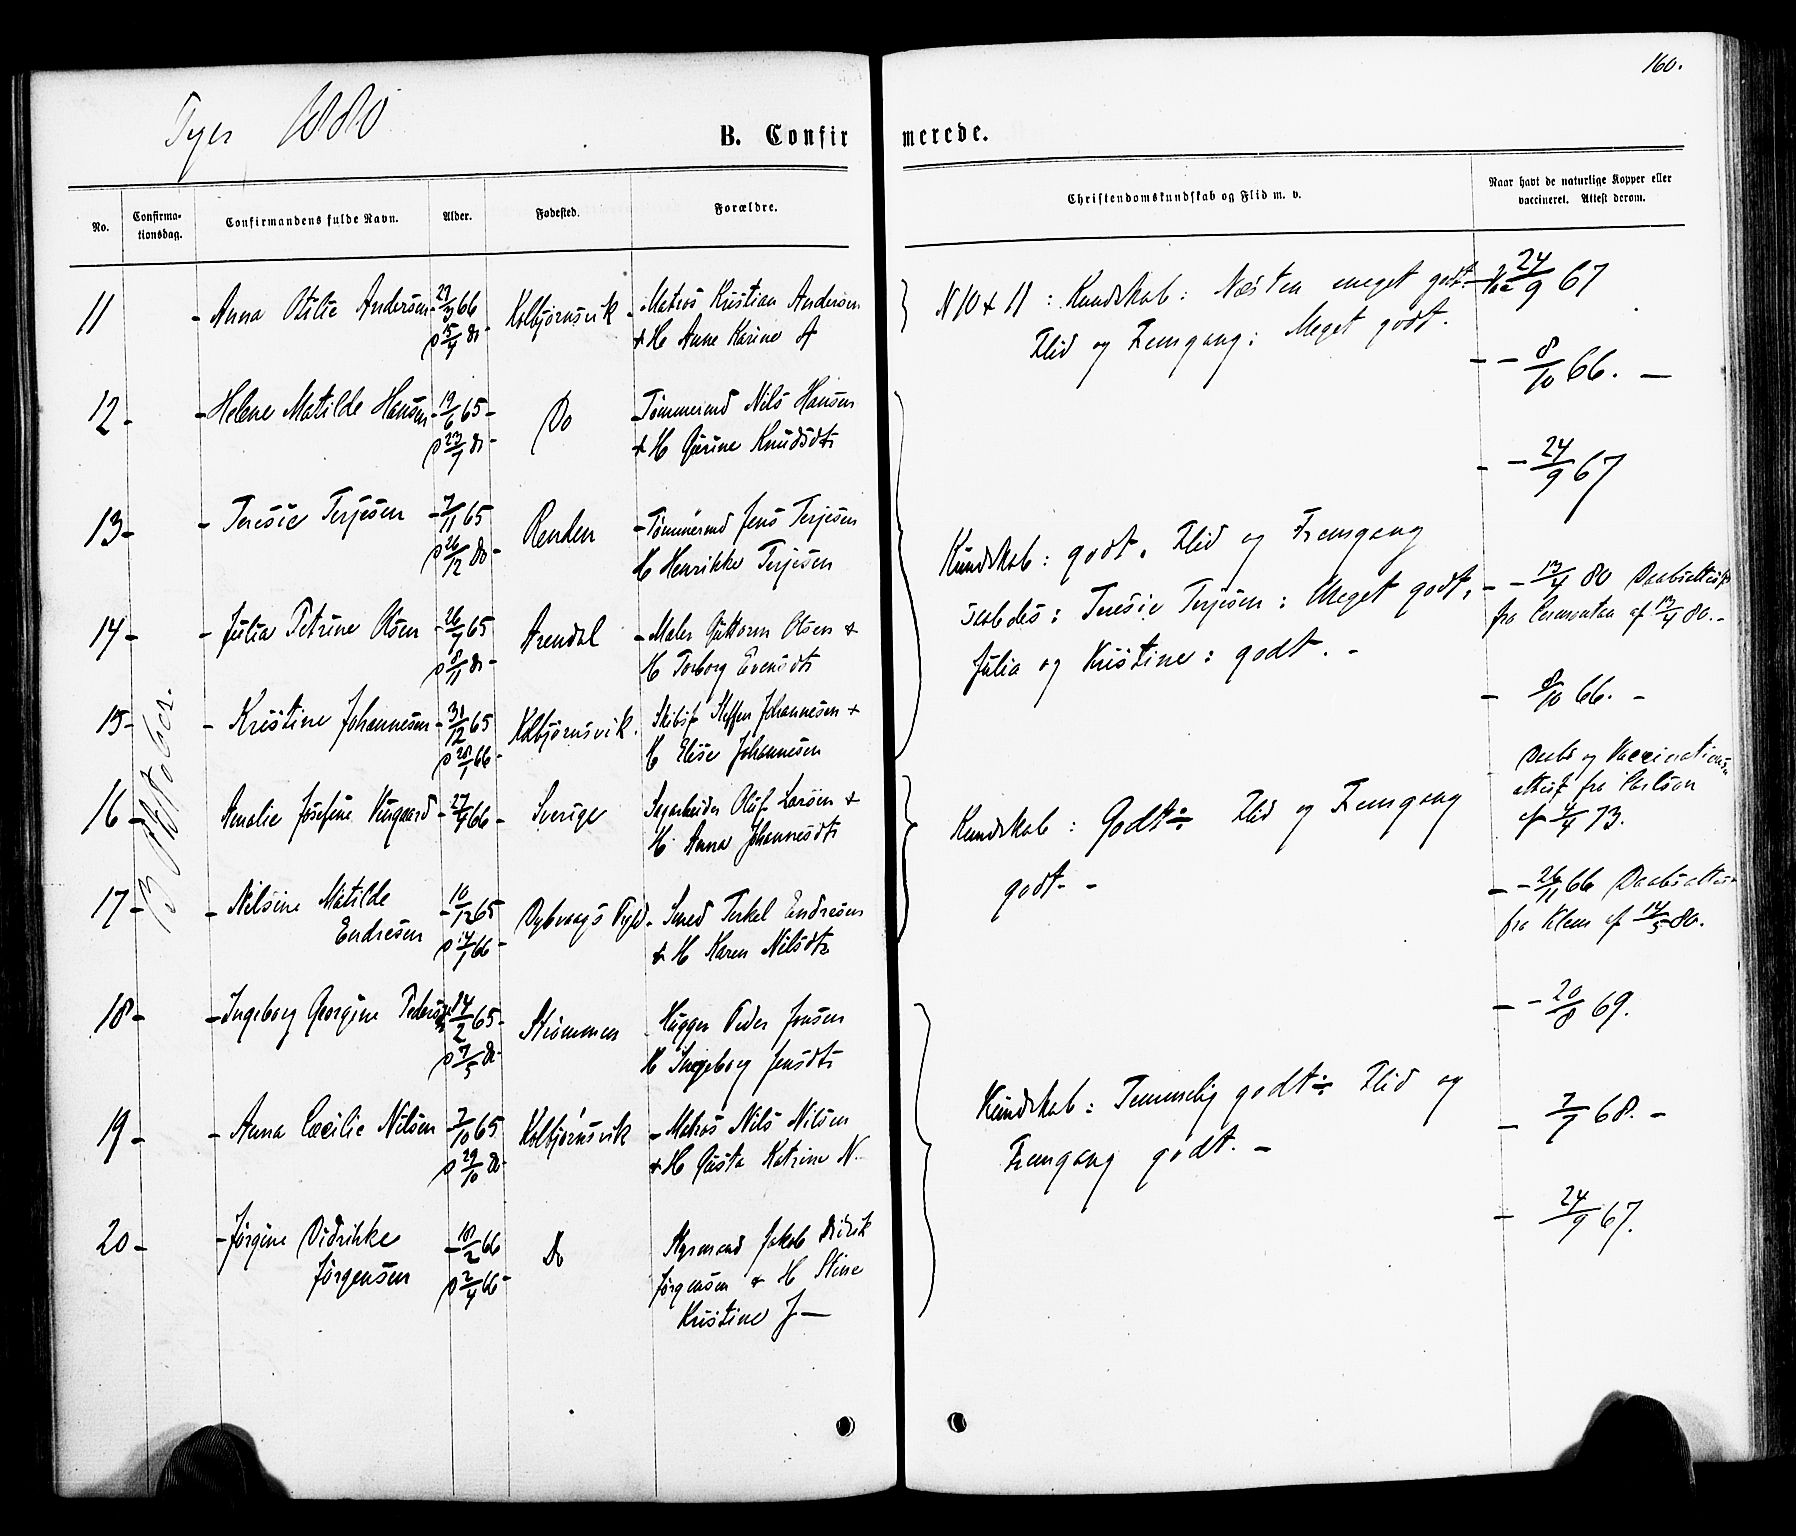 160.
Piger 1880
B. Confirmerede.
No.
Confirma-
tionsdag.
Confirmandens fulde Navn.
Alder.
Fødested.
Forældre.
Christendomskundskab og Flid m. v.
Naar havt de naturlige Kopper eller
vaccineret. Attest derom.
3 Oktober.
11 - Anna Otilie Andersen - 23/3 66 Kolbjørnsvik - Matros Kristian Andersen
D 5/4 80 - & H Anne Karine A
N 10 + 11 : Kundskab : Næsten meget godt. - Vac 24/9 67
Flid og Fremgang : Meget godt.
12 - Helene Matilde Hansen - 19/6 65 - Do - Tømmermd Nils Hansen
D 23/7 80 - & H Gurine Knudsdtr
- - 8/10 66. -
13 - Teresie Terjesen - 7/11 65 Renden - Tømmermd Jens Terjesen
D 26/12 80 - H Henrikke Terjesen
- - 24/9 67
Kundskab : godt. Flid og Fremgang
saaledes : Teresie Terjesen : Meget godt,
Julia og Kristine : godt. -
14 - Julia Petrine Olsen - 26/9 65 Arendal - Maler Guttorm Olsen &
D 8/11 80 - H Torborg Evensdtr
- - 13/4 80 Daabsattest
fra af 13/4 80. -
15 - Kristine Johannesen - 31/12 65 Kolbjørnsvik. Skibsf Steffen Johannesen &
D 28/1 66 - H Elise Johannesen
- 8/10 66. -
16 - Amalie Josefine - 27/9 66 - Sverige Sagarbeider Oluf Larsen &
H Anna Johannesdtr
Daabs og Vaccinations
attest fra
af 4/4 73.
Kundskab : Godt ÷ Flid og Fremgang
godt. -
17 - Nilsine Matilde - 10/12 65 Dybvaags Pgld - Smed Terkel Endresen
Endresen D 14/1 66 - & H Karen Nilsdtr
- - 26/11 66 Daabsattest
fra af 14/5 80.
18 - Ingeborg Georgine Pedersen 14/2 65 - Strømmen - Hugger Peder Jensen
D 7/5 80 - H Ingeborg Jensdtr
- - 20/8 69.
Kundskab : Temmelig godt ÷ Flid og
Fremgang godt. -
19 - Anna Cæcilie Nilsen - 7/10 65 Kolbjørnsvik - Matros Nils Nilsen
D 29/10 80 - & H Gusta Katrine N.
- 7/7 68. -
20 - Jørgine Didrikke - 18/2 66 Do Styrmand Jakob Didrik
Jørgensen D 2/4 66 - Jørgensen & H Stine
Kristine J -
- 24/9 67.